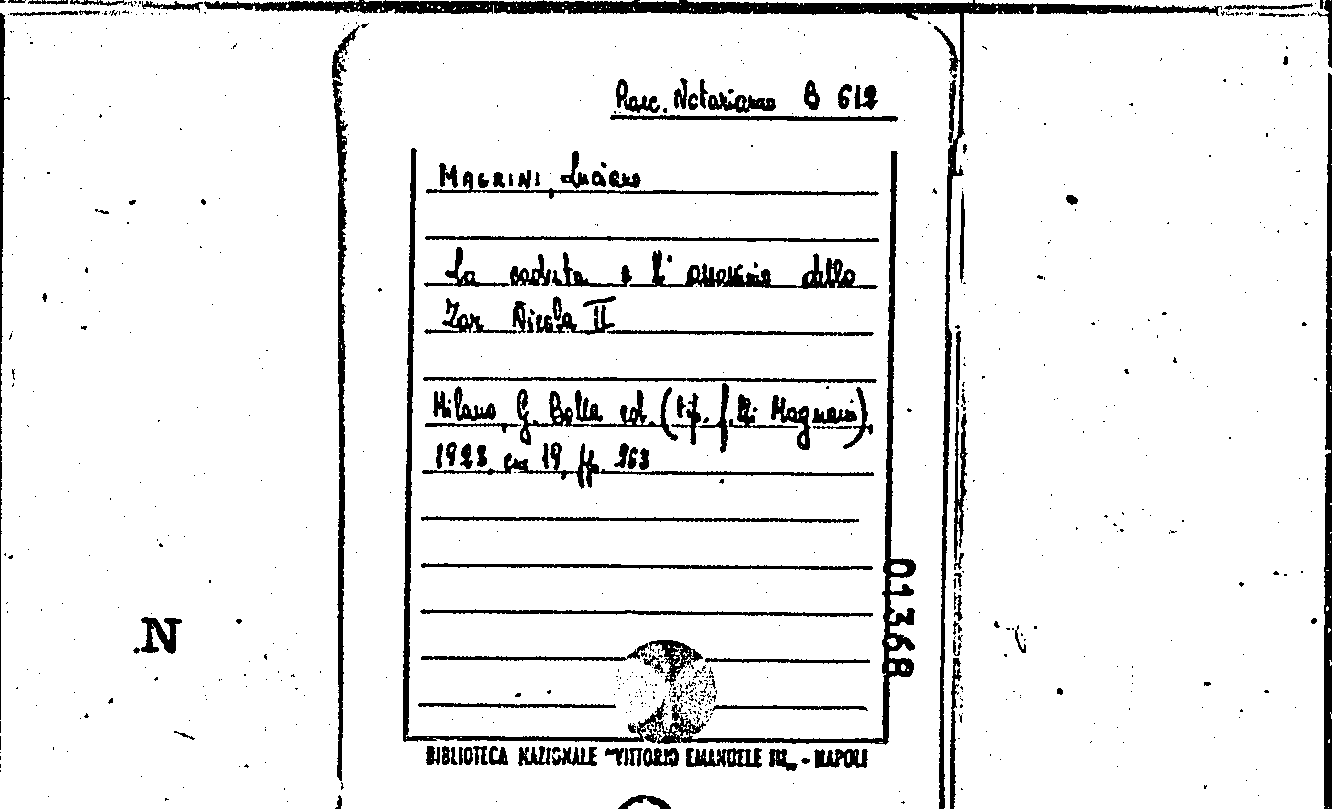 Racc. Notarianni B 612
MAGRINI, Luciano
La caduta e l'assassinio dello
Zar Nicola II
Milano, G. Bolla ed. (tip. f.lli Magnani),
1923, cm 19, pp. 263
01368
N
BIBLIOTECA NAZIONALE "VITTORIO EMANUELE III" - NAPOLI